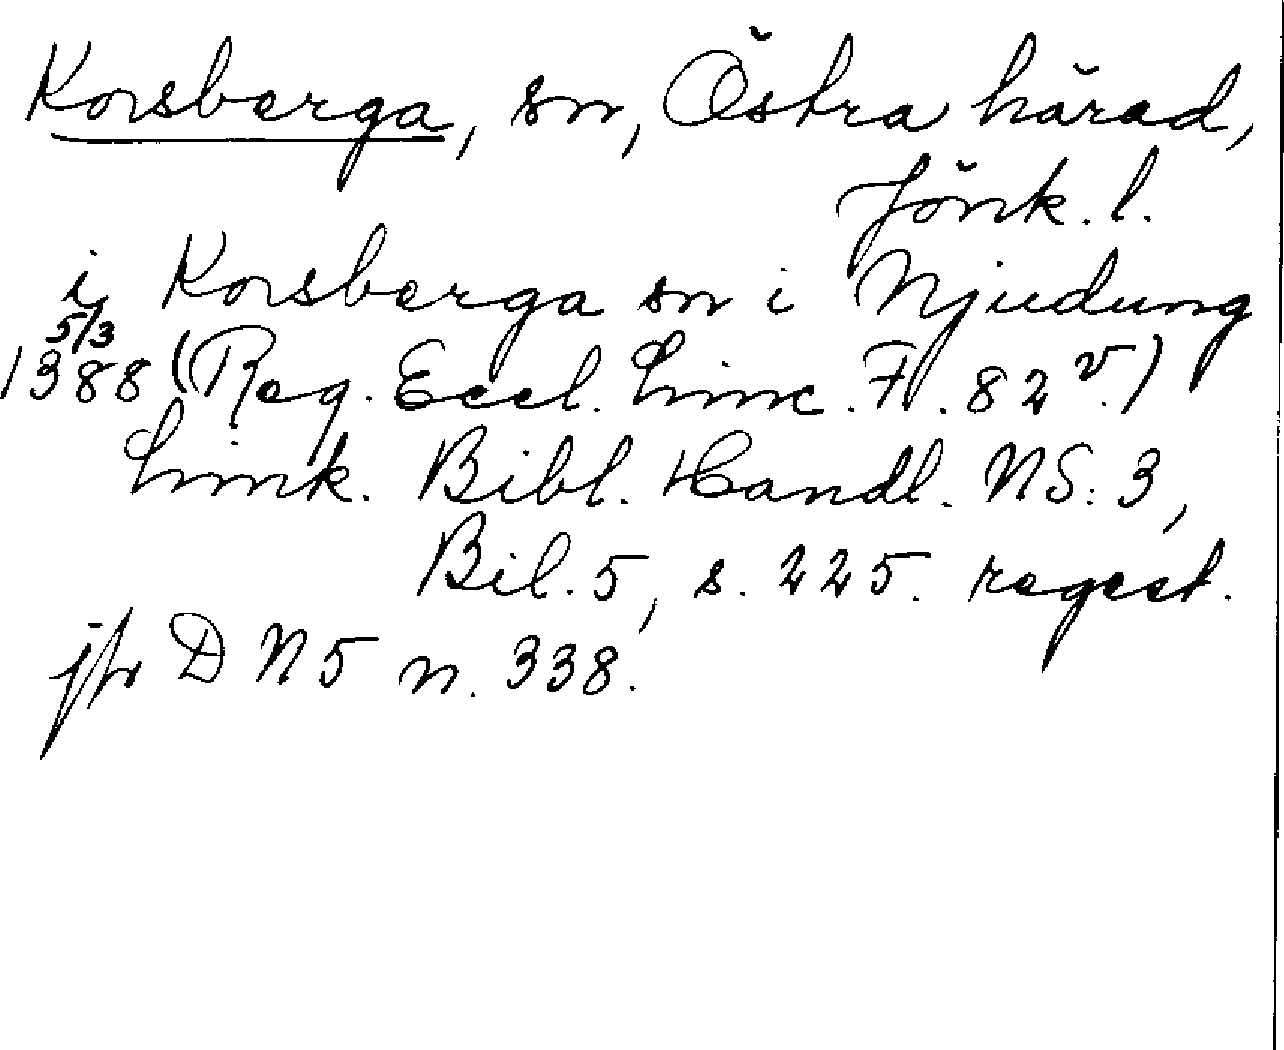 Korsberga, sn, Östra härad,
Jönk. l.
i Korsberga sn i Njudung
5/3
1388 (Reg. Eccl. Linc. F. 82 v.)
Link. Bibl. Handl. NS: 3,
Bil. 5, s. 225. regest.
jfr DN 5 n. 338.